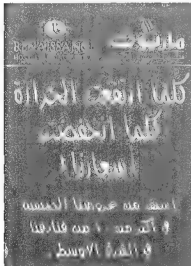 RENAISSANCE
كلما ارتفعت الحرارة
كلما انخفضت
أسعارنا!
استفد من عروضنا الخاصة
في أكثر من ١٠ من فنادقنا
في الشرق الأوسط.